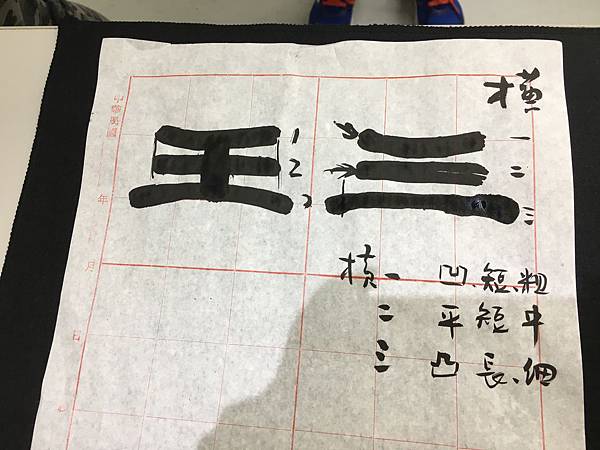 橫
一
二
三
三
王
1
2
橫一 凹、短、粗
二 平 短 中
三 凸 長、細
中華民國 年 月